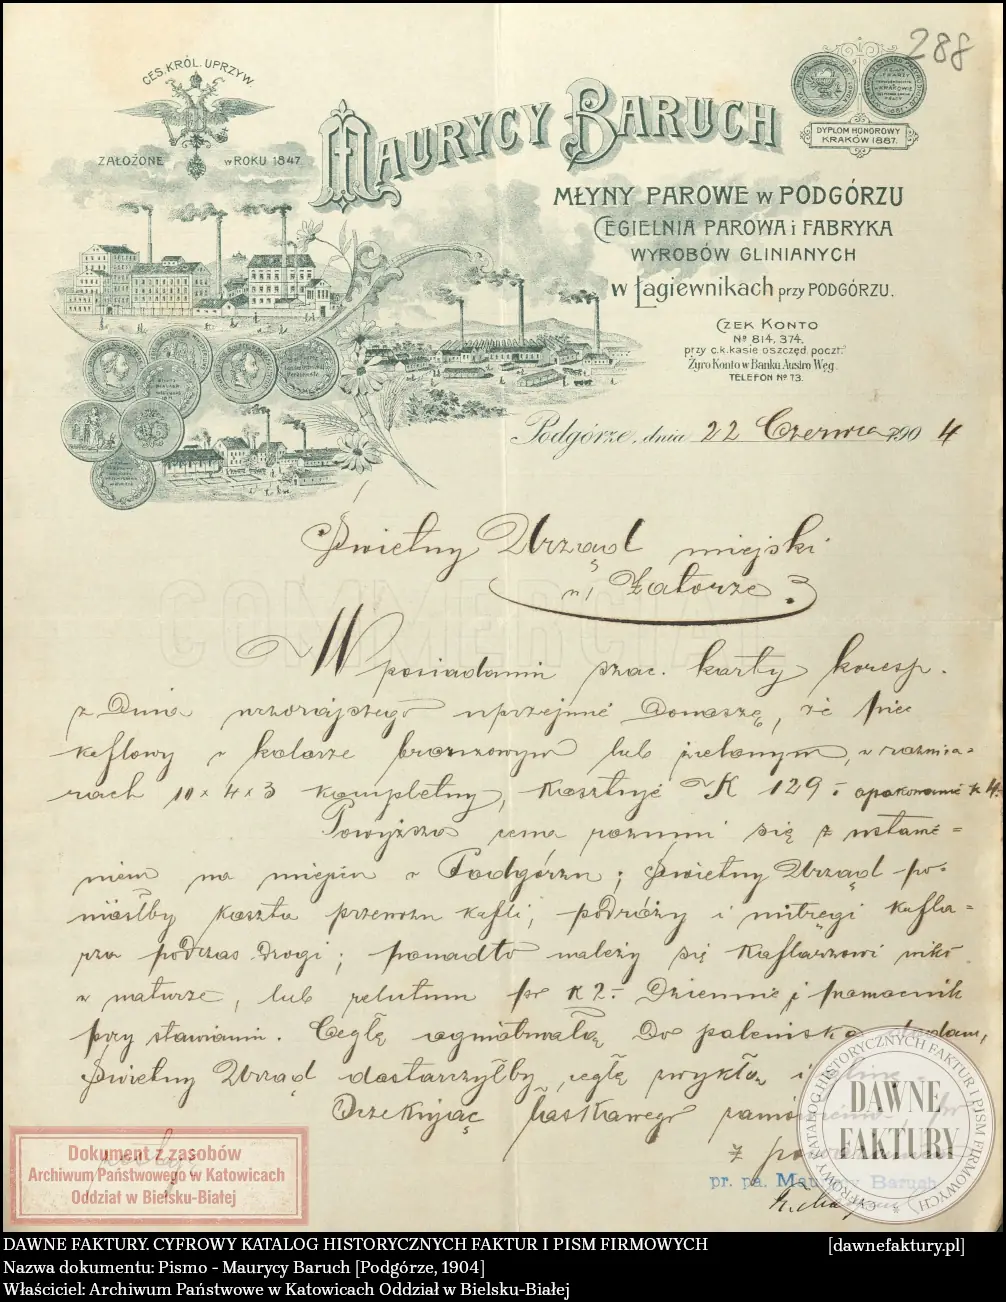 288
CES. KRÓL. UPRZYW.
ZAŁOŻONE w ROKU 1847.
MAURYCY BARUCH
DYPLOM HONOROWY
KRAKÓW 1887.
MŁYNY PAROWE w PODGÓRZU
CEGIELNIA PAROWA i FABRYKA
WYROBÓW GLINIANYCH
w Łagiewnikach przy PODGÓRZU.
CZEK KONTO
Nº 814,374.
przy c.k. kasie oszczęd. poczt.
Żyro Konto w Banku Austro Węg.
TELEFON Nº 73.
Podgórze, dnia 22 Czerwca 1904
Świetny Urząd miejski
w Zatorze
COMMERCIAL
W posiadaniu szac. karty koresp.
z dnia wczorajszego uprzejmie donoszę, że piec
kaflowy w kolorze bronzowym lub zielonym, w rozmia-
rach 10 x 4 x 3 kompletny, kosztuje K 129.- opakowanie K 4.-
Powyższa cena rozumi się z ustawie-
niem na miejscu w Podgórzu; Świetny Urząd po-
niósłby koszta przewozu kafli, podróży i mitręgi kafla-
rza podczas drogi; ponadto należy się kaflarzowi wikt
w naturze, lub relutum po K 2.- dziennie i pomocnik
przy stawianiu. Cegłę ogniotrwałą do paleniska dodam,
Świetny Urząd dostarczyłby cegłę zwykłą i glinę.
Oczekując łaskawego
z
pr. pa. Maurycy Baruch
Dokument z zasobów
Archiwum Państwowego w Katowicach
Oddział w Bielsku-Białej
DAWNE
FAKTURY
CYFROWY KATALOG HISTORYCZNYCH FAKTUR I PISM FIRMOWYCH
DAWNE FAKTURY. CYFROWY KATALOG HISTORYCZNYCH FAKTUR I PISM FIRMOWYCH [dawnefaktury.pl]
Nazwa dokumentu: Pismo - Maurycy Baruch [Podgórze, 1904]
Właściciel: Archiwum Państwowe w Katowicach Oddział w Bielsku-Białej